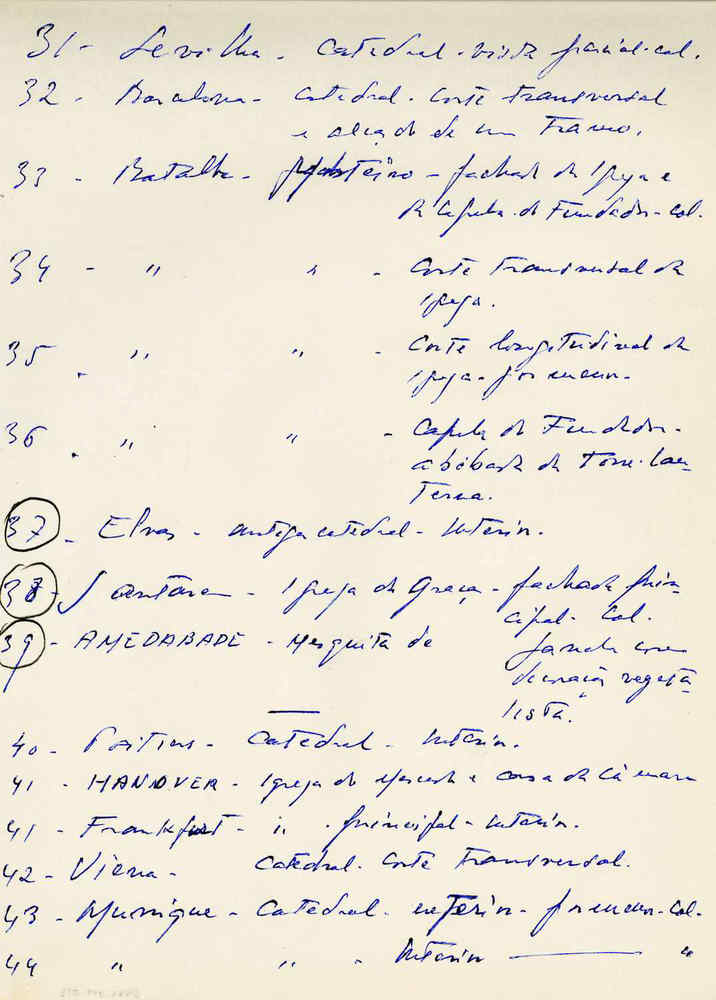 31 - Sevilha - Catedral - vista parcial - col.
32 - Barcelona - Catedral. Corte transversal
e alçado de um Tramo.
33 - Batalha - Mosteiro - fachada da Igreja e
da Capela do Fundador - col.
34 - " " - Corte transversal da
Igreja.
35 - " " - Corte longitudinal da
Igreja -
36 - " " - Capela do Fundador -
abóbada da Torre-lan-
terna.
37 - Elvas - antiga catedral - Interior.
38 - Santarém - Igreja da Graça - fachada prin-
cipal - Col.
39 - AMEDABADE - Mesquita de
Janela com
decoração vegeta-
lista.
40 - Poitiers - Catedral - Interior.
41 - HANOVER - Igreja do Mercado e casa da Câmara
41 - Frankfurt - " . principal - Interior.
42 - Viena - Catedral. Corte Transversal.
43 - Munique - Catedral. interior - - col.
44 " " - Interior "